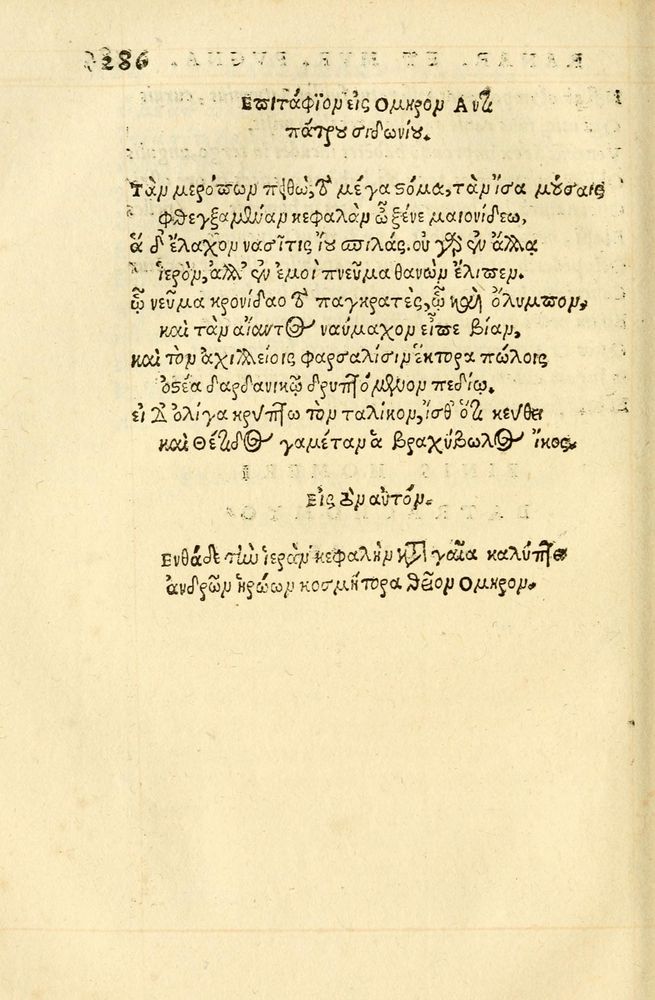 286
Επιτάφιον εἰς Ομηρον Αντι
πάτρου σιδωνίου.
Τὰν μερόπων πειθὼ, τὸ μέγα στόμα, τὰν ἴσα μούσαις
φθεγξαμέναν κεφαλὰν ὦ ξένε μαιονίδεω,
ἅ δ' ἔλαχον νασῖτις ἴου σπιλάς. οὐ γὰρ ἐν ἄλλᾳ
ἱερὸν, ἀλλ' ἐν ἐμοὶ πνεῦμα θανὼν ἔλιπεν.
ᾧ νεῦμα κρονίδαο τὸ παγκρατὲς, ᾧ καὶ ὄλυμπον,
καὶ τὰν αἴαντος ναύμαχον εἶπε βίαν,
καὶ τὸν ἀχιλλείοις φαρσαλίσιν ἕκτορα πώλοις
ὀστέα δαρδανικῷ δρυπτόμενον πεδίῳ.
ει δ' ὀλίγα κρύπτω τὸν ταλίκον, ἴσθ' ὅτι κεύθει
καὶ Θέτιδος γαμέταν ἁ βραχύβωλος ἴκος.
Εἰς τὸν αὐτόν.
Ενθάδε τὴν ἱερὰν κεφαλὴν κατὰ γαῖα καλύπτει
ἀνδρῶν ἡρώων κοσμήτορα θεῖον Ομηρον.